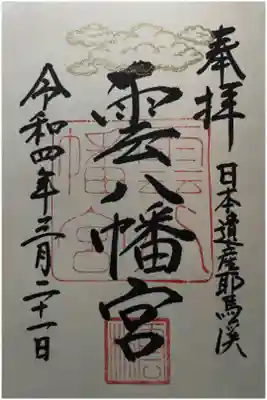 奉拝
日本遺産耶馬渓
雲八幡宮
令和四年三月二十一日